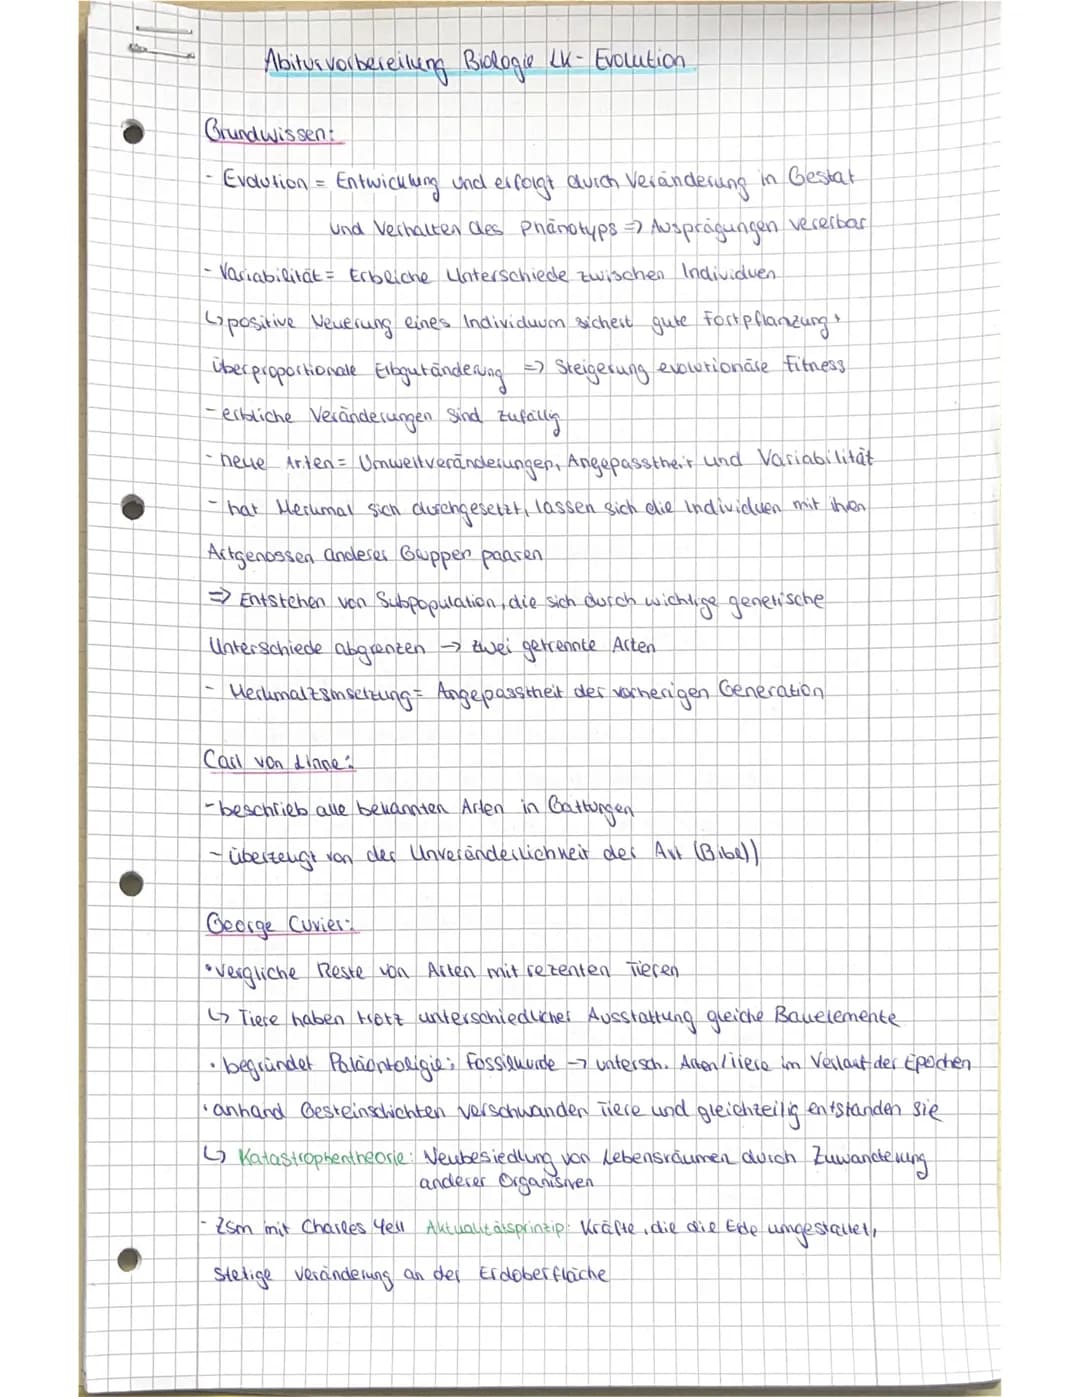 Abiturvorbereitung Biologie LK - Evolution
Grundwissen:
- Evolution = Entwicklung und erfolgt durch Veränderung in Gestalt
und Verhalten des Phänotyps => Ausprägungen vererbar
- Variabilität = Erbliche Unterschiede zwischen Individuen
↳ positive Neuerung eines Individuum sichert gute Fortpflanzung,
überproportionale Erbgutänderung => Steigerung evolutionäre Fitness
- erbliche Veränderungen sind zufällig
- neue Arten = Umweltveränderungen, Angepasstheit und Variabilität
- hat Merkmal sich durchgesetzt, lassen sich die Individuen mit ihren
Artgenossen anderer Gruppen paaren
=> Entstehen von Subpopulation, die sich durch wichtige genetische
Unterschiede abgrenzen -> zwei getrennte Arten
- = Angepasstheit der vorherigen Generation
Carl von Linne:
- beschrieb alle bekannten Arten in Gattungen
- überzeugt von der Unveränderlichkeit der Art (Bibel)
George Cuvier:
• vergliche Reste von Arten mit rezenten Tieren
↳ Tiere haben trotz unterschiedlicher Ausstattung gleiche Bauelemente
• begründet Paläontoligie; Fossilkunde -> untersch. Arten/Tiere im Verlauf der Epochen
• anhand Gesteinschichten verschwanden Tiere und gleichzeitig entstanden sie
↳ Katastrophentheorie: Neubesiedlung von Lebensräumen durch Zuwanderung
anderer Organismen
- Zsm mit Charles Yell Aktualitätsprinzip: Kräfte, die die Erde umgestaltet,
stetige Veränderung an der Erdoberfläche